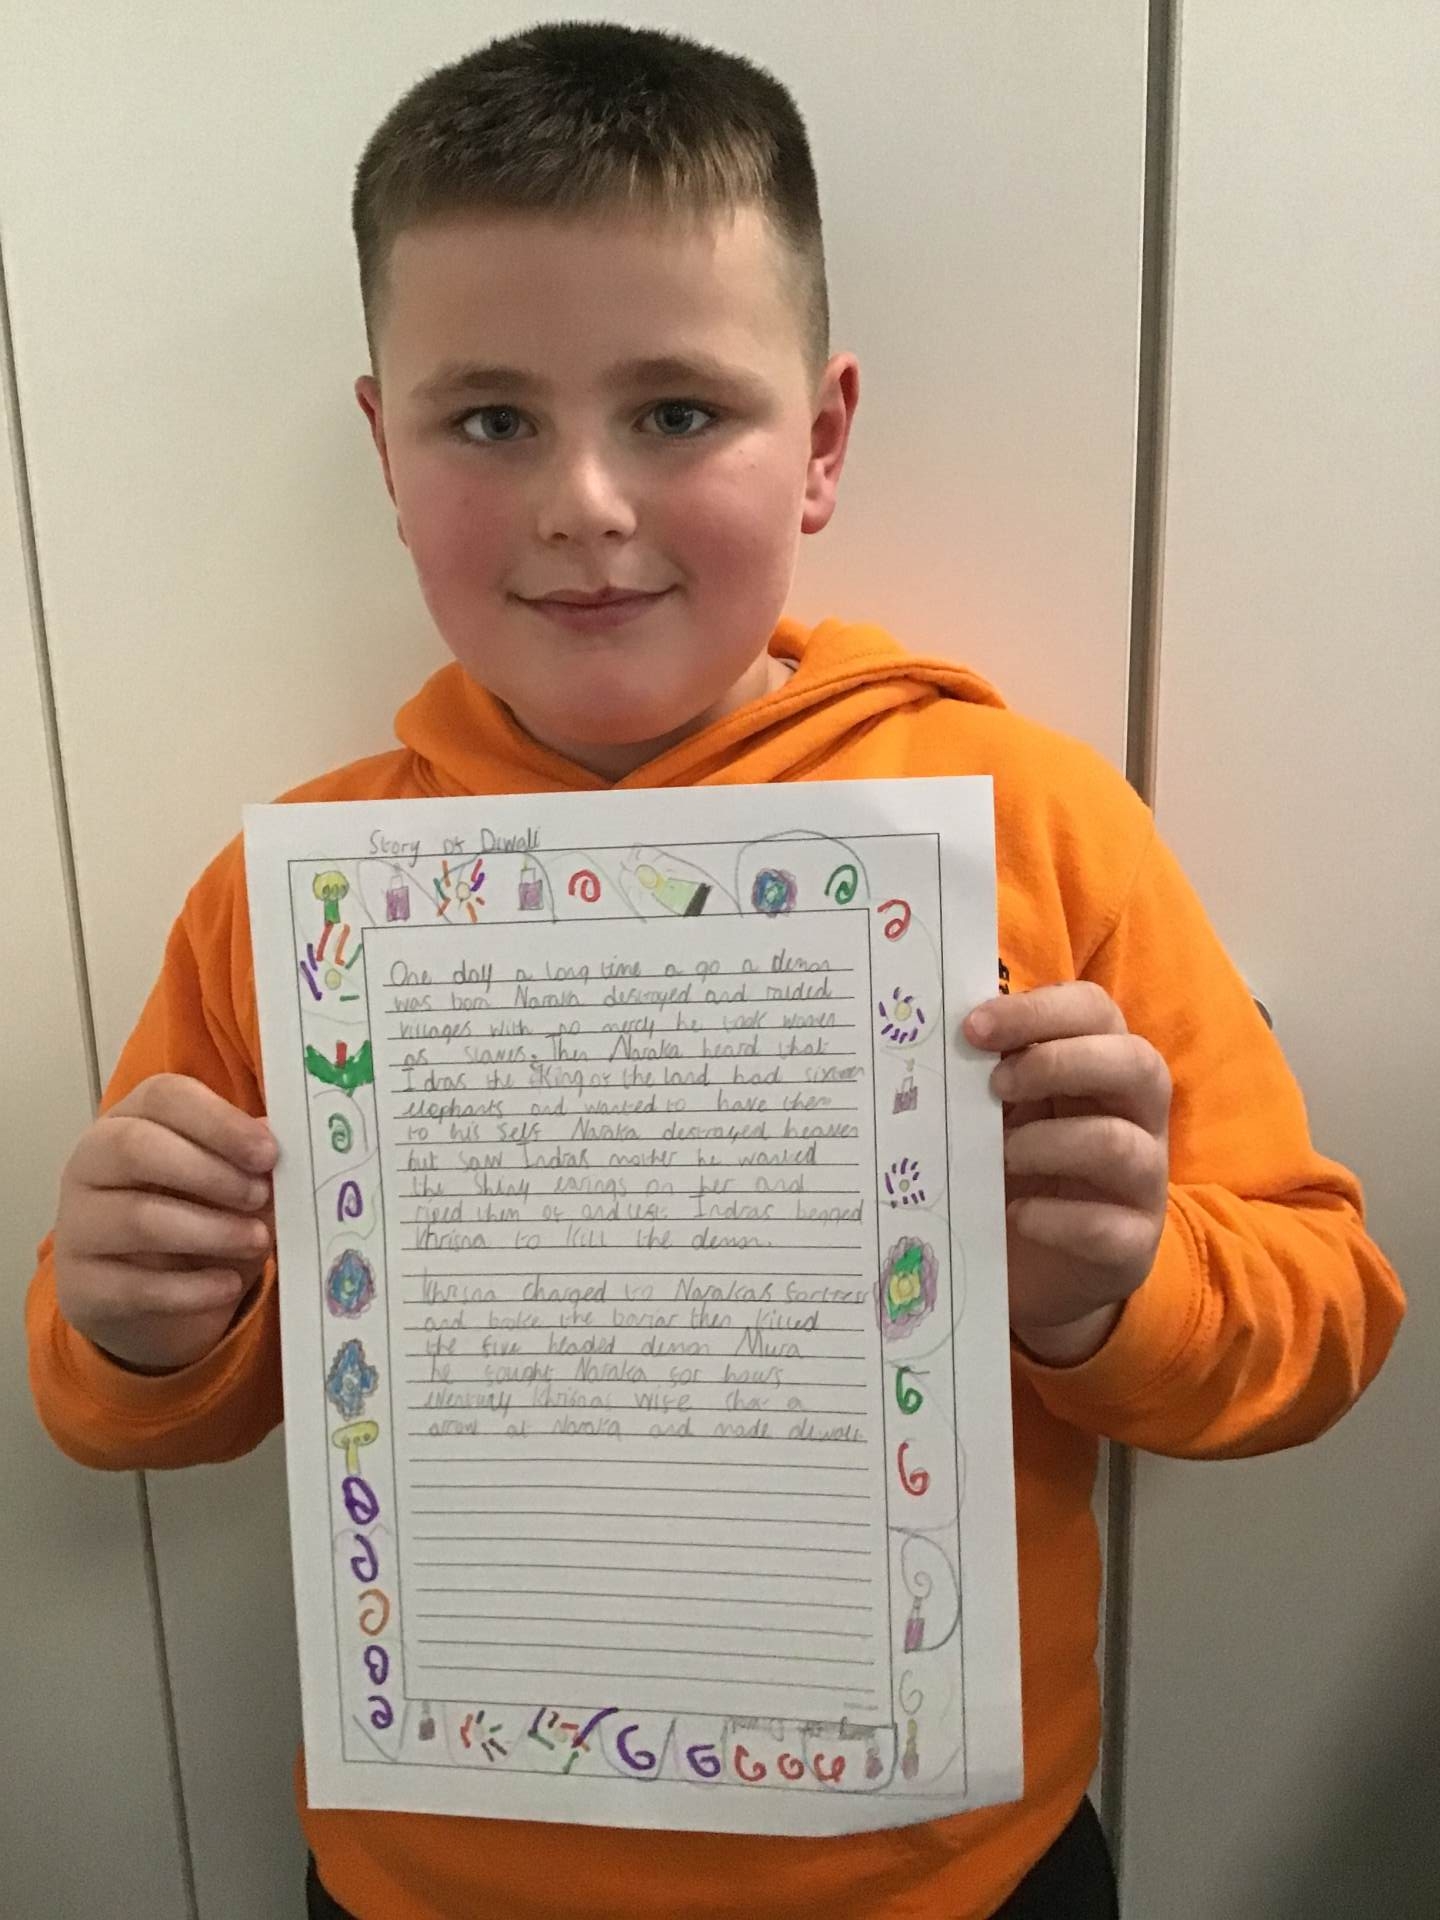 Story of Diwali
One day a long time a go a demon
was born Naraka destroyed and raided
villages with no mercy he took women
as slaves. Then Naraka heard that
Idras the King of the land had sixteen
elephants and wanted to have them
to his self Naraka destroyed heaven
but saw Indras mother he wanted
the shiny earings on her and
riped them of and left Indras begged
Khrisna to kill the demon.
Khrisna charged to Narakas fortress
and broke the bariar then killed
the five headed demon Mura
he fought Naraka for hours
eventually Khrisnas wife shot a
arrow at Naraka and made diwali